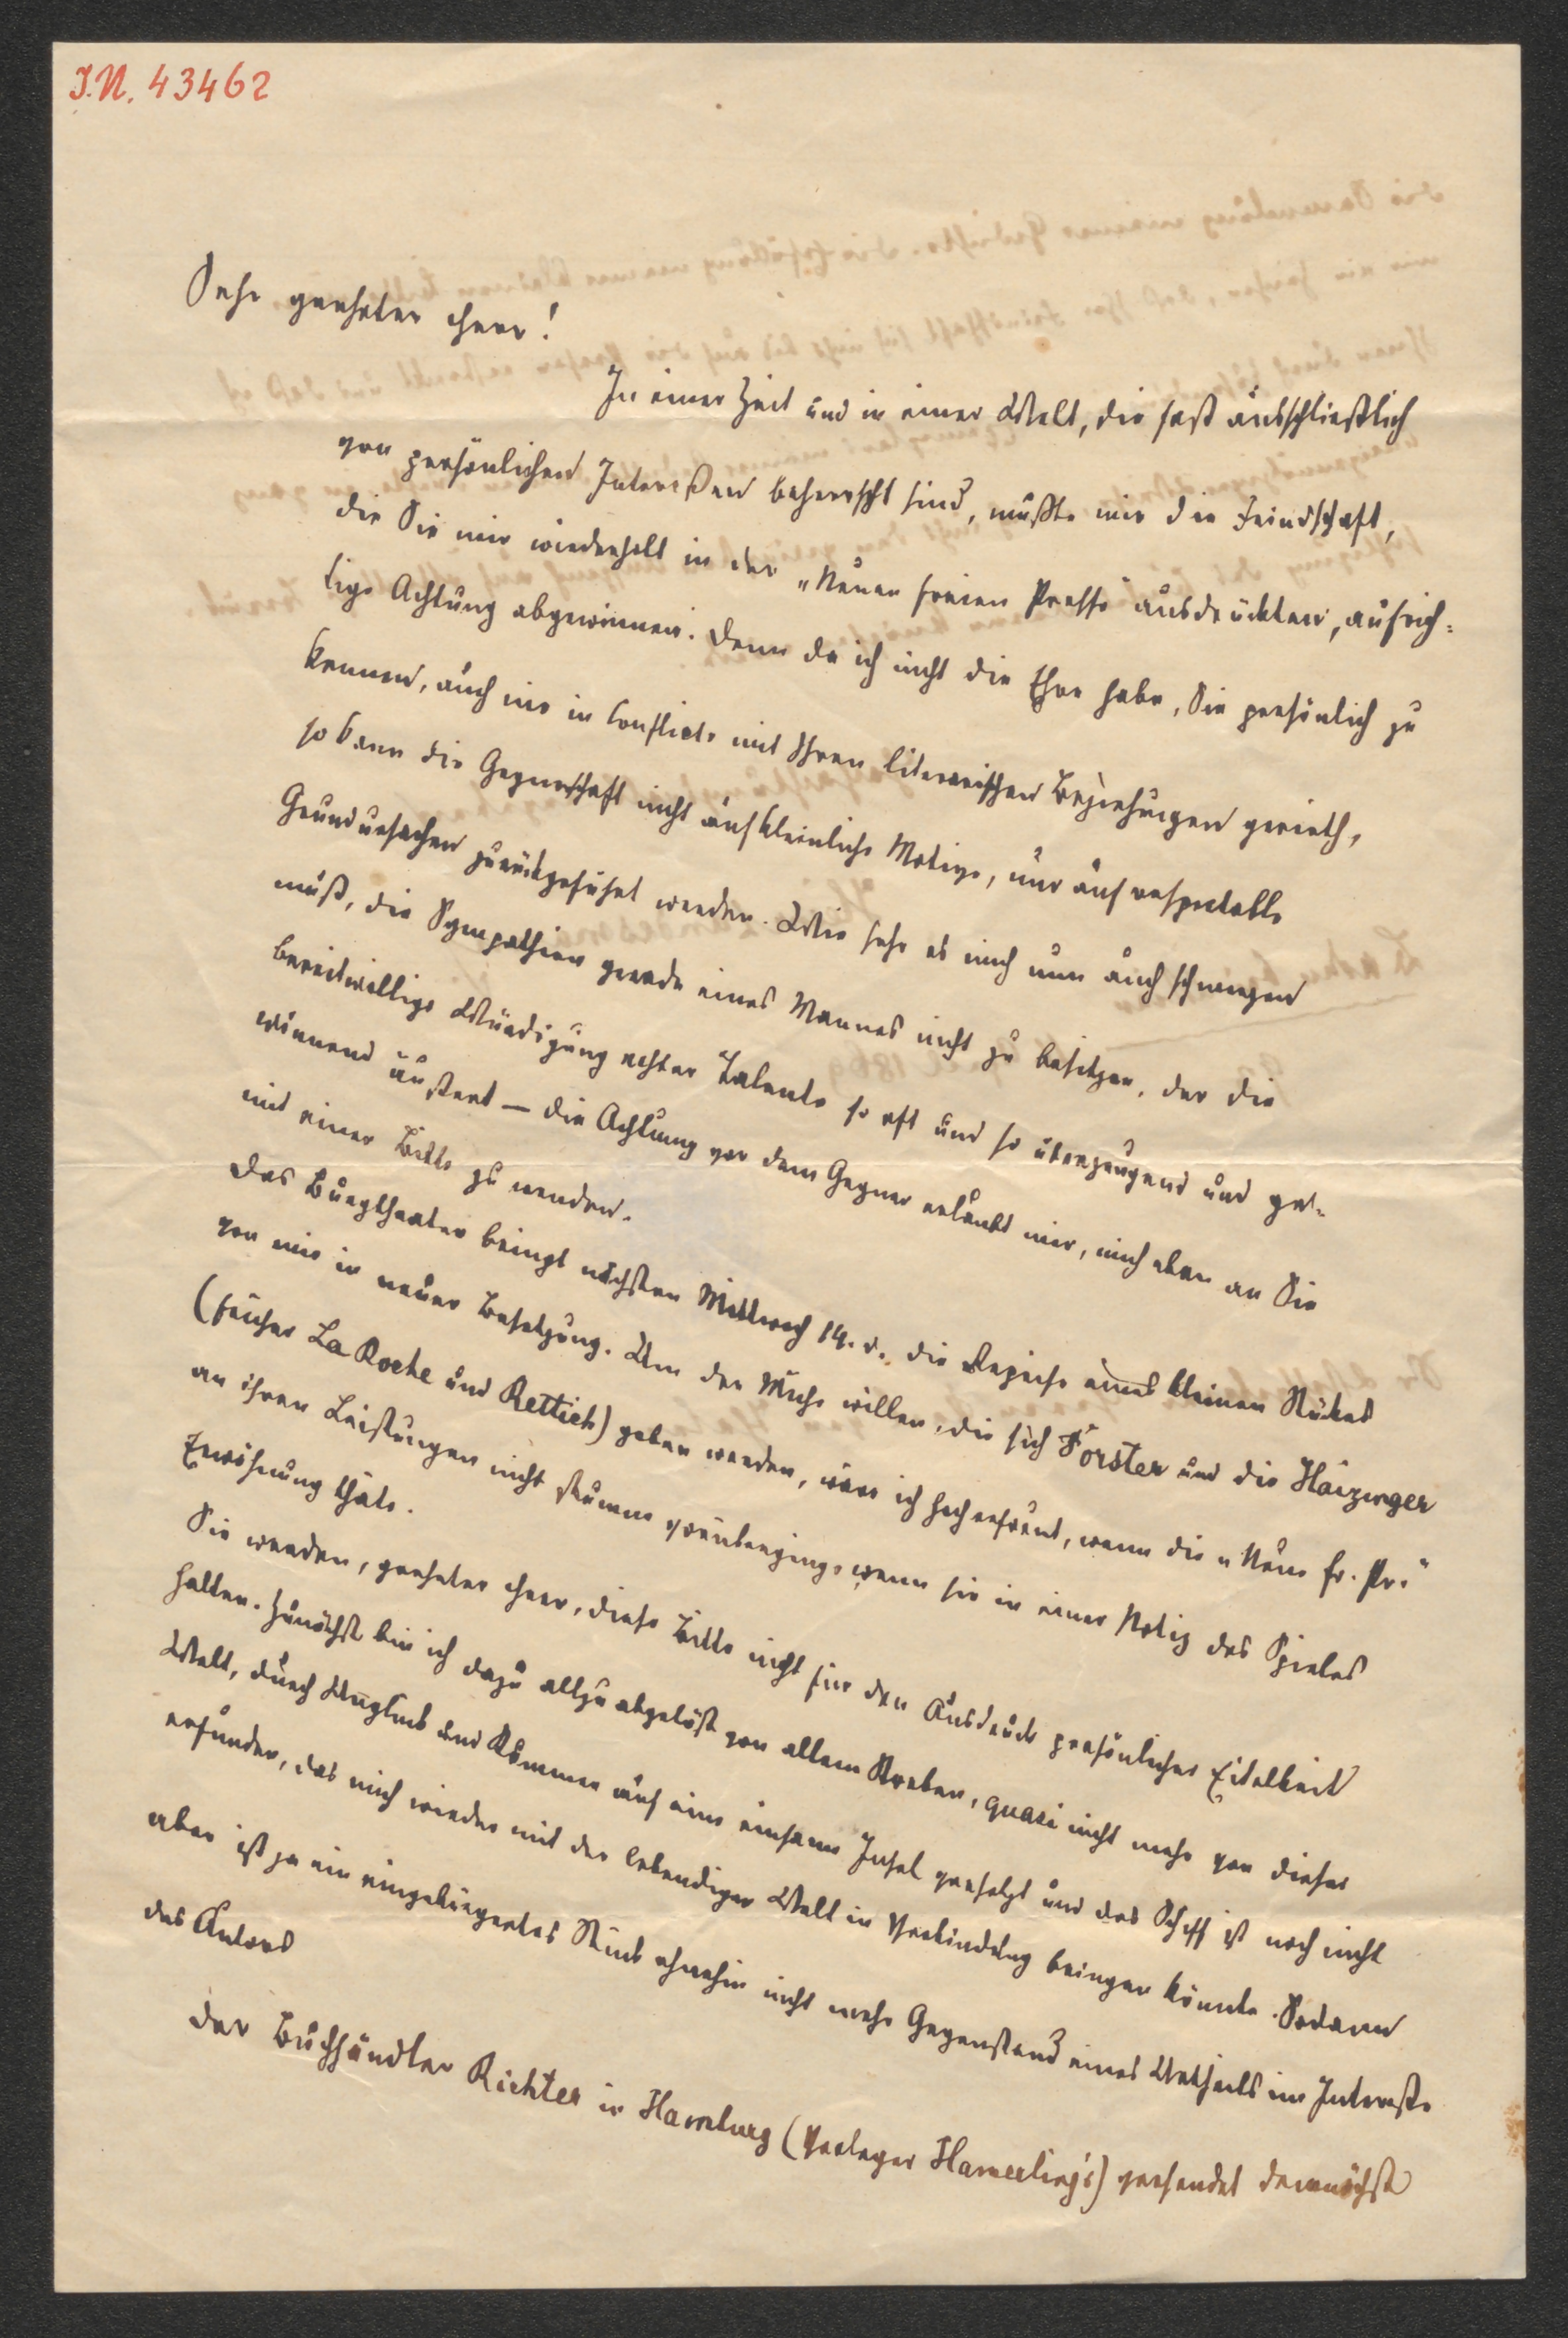 I.N. 43462
Sehr geehrter Herr!
In einer Zeit und in einer Welt, die fast ausschließlich
von persönlichen Interessen beherrscht sind, mußte mir die Feindschaft,
die Sie mir wiederholt in der „Neuen freien Presse" ausdrückten, aufrich-
tige Achtung abgewinnen. Denn da ich nicht die Ehre habe, Sie persönlich zu
kennen, auch nie in Conflicte mit Ihren literarischen Beziehungen gerieth,
so kann die Gegnerschaft nicht auf kleinliche Motive, nur auf respectable
Grundursachen zurückgeführt werden. Wie sehr es mich nun auch schmerzen
muß, die Sympathien gerade eines Mannes nicht zu besitzen, der die
bereitwillige Würdigung echter Talente so oft und so überzeugend und ge-
winnend äußert — die Achtung vor dem Gegner erlaubt mir, mich eben an Sie
mit einer Bitte zu wenden.
Das Burgtheater bringt nächsten Mittwoch 14. d. die Reprise eines kleinen Stückes
von mir in neuer Besetzung. Um der Mühe willen, die sich Förster und die Haizinger
(früher La Roche und Rettich) geben werden, wäre ich hocherfreut, wenn die „Neue fr. Pr."
an ihren Leistungen nicht stumm vorüberginge, wenn sie in einer Notiz des Spieles
Erwähnung thäte.
Sie werden, geehrter Herr, diese Bitte nicht für den Ausdruck persönlicher Eitelkeit
halten. Zunächst bin ich dazu allzu abgelöst von allem Streben, quasi nicht mehr von dieser
Welt, durch Unglück und Kummer auf eine einsame Insel versetzt und das Schiff ist noch nicht
erfunden, das mich wieder mit der lebendigen Welt in Verbindung bringen könnte. Sodann
aber ist ja ein eingebürgertes Stück ohnehin nicht mehr Gegenstand eines Urtheils im Interesse
des Autors
Der Buchhändler Richter in Hamburg (Verleger Hamerling's) versendet demnächst